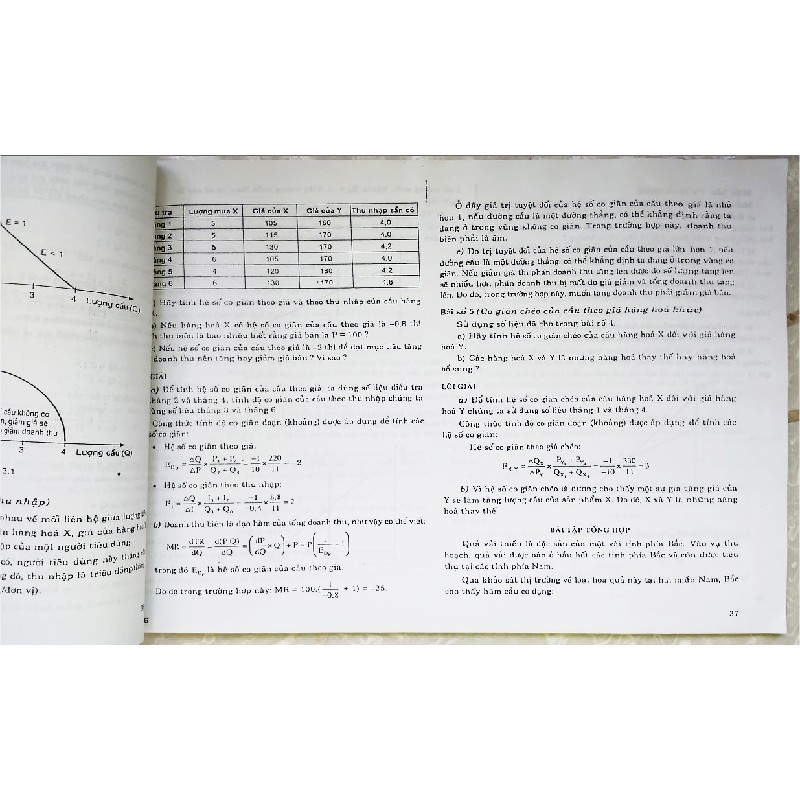 E = 1
E < 1
3
4
Lượng cầu (Q)
cầu không co
n, giảm giá sẽ
giảm doanh thu
3
4
Lượng cầu (Q)
3.1
hu nhập)
nhau về mối liên hệ giữa lượng
n hàng hoá X, giá của hàng
ập của một người tiêu dùng:
có, người tiêu dùng này tháng
g đó, thu nhập là triệu đồng/tháng
đơn vị).
6
u tra | Lượng mua X | Giá của X | Giá của Y | Thu nhập sẵn có
áng 1 | 5 | 105 | 160 | 4,0
áng 2 | 5 | 115 | 170 | 4,0
áng 3 | 5 | 130 | 170 | 4,2
áng 4 | 6 | 105 | 170 | 4,0
áng 5 | 4 | 120 | 180 | 4,2
áng 6 | 6 | 130 | 170
) Hãy tính hệ số co giãn theo giá và theo thu nhập của cầu hàng
) Nếu hàng hoá X có hệ số co giãn của cầu theo giá là –0,8 thì
h thu biên là bao nhiêu biết rằng giá bán là P = 100 ?
) Nếu hệ số co giãn của cầu theo giá là –2 thì để đạt mục tiêu tăng
doanh thu nên tăng hay giảm giá bán ? Vì sao ?
GIẢI
a) Để tính hệ số co giãn của cầu theo giá, ta dùng số liệu điều tra
háng 2 và tháng 4, tính độ co giãn của cầu theo thu nhập chúng ta
ùng số liệu tháng 3 và tháng 6.
Công thức tính độ co giãn đoạn (khoảng) được áp dụng để tính các
số co giãn:
• Hệ số co giãn theo giá:
• Hệ số co giãn theo thu nhập:
b) Doanh thu biên là đạo hàm của tổng doanh thu, như vậy có thể viết:
trong đó là hệ số co giãn của cầu theo giá.
Do đó trong trường hợp này: MR = 100.(1/–0,8 + 1) = –25.
Ở đây giá trị tuyệt đối của hệ số co giãn của cầu theo giá là nhỏ
hơn 1, nếu đường cầu là một đường thẳng, có thể khẳng định rằng ta
đang ở trong vùng không co giãn. Trong trường hợp này, doanh thu
biên phải là âm.
c) Do trị tuyệt đối của hệ số co giãn của cầu theo giá lớn hơn 1, nếu
đường cầu là một đường thẳng có thể khẳng định ta đang ở trong vùng co
giãn. Nếu giảm giá thì phần doanh thu tăng lên được do số lượng tăng lên
sẽ nhiều hơn phần doanh thu bị mất do giá giảm và tổng doanh thu tăng
lên. Do đó, trong trường hợp này, muốn tăng doanh thu phải giảm giá bán.
Bài số 5 (Co giãn chéo của cầu theo giá hàng hoá khác)
Sử dụng số liệu đã cho trong bài số 4.
a) Hãy tính hệ số co giãn chéo của cầu hàng hoá X đối với giá hàng
hoá Y.
b) Các hàng hoá X và Y là những hàng hoá thay thế hay hàng hoá
bổ sung ?
LỜI GIẢI
a) Để tính hệ số co giãn chéo của cầu hàng hoá X đối với giá hàng
hoá Y chúng ta sử dụng số liệu tháng 1 và tháng 4.
Công thức tính độ co giãn đoạn (khoảng) được áp dụng để tính các
hệ số co giãn:
Hệ số co giãn theo giá chéo:
b) Vì hệ số co giãn chéo là dương cho thấy một sự gia tăng giá của
Y sẽ làm tăng lượng cầu của sản phẩm X. Do đó, X và Y là những hàng
hoá thay thế.
BÀI TẬP TỔNG HỢP
Quả vải thiều là đặc sản của một vài tỉnh phía Bắc. Vào vụ thu
hoạch, quả vải được bán ở hầu hết các tỉnh phía Bắc và còn được tiêu
thụ tại các tỉnh phía Nam.
Qua khảo sát thị trường về loại hoa quả này tại hai miền Nam, Bắc
cho thấy hàm cầu có dạng:
37